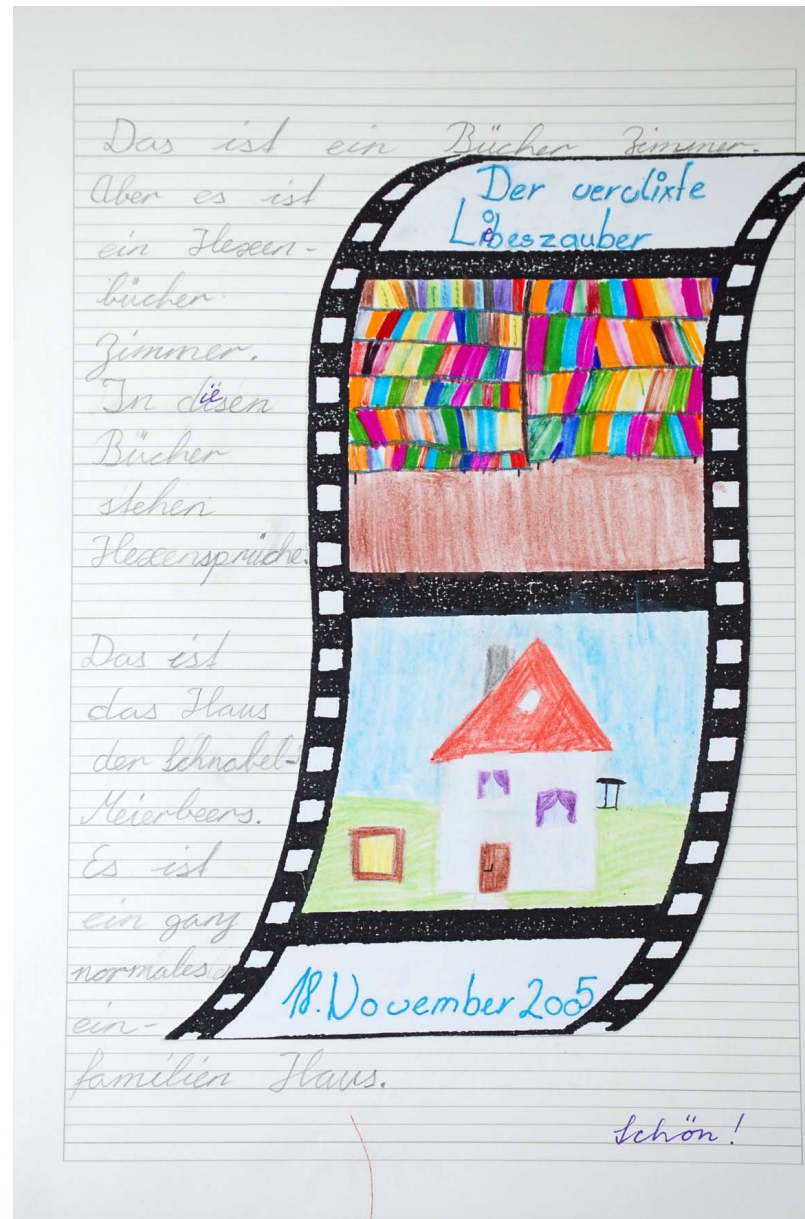 Das ist ein Bücher Zimmer.
Aber es ist
ein Hexen-
bücher
Zimmer.
In diesen
Bücher
stehen
Hexensprüche.
Das ist
das Haus
der Schnabel-
Meierbeers.
Es ist
ein ganz
normales
ein-
familien Haus.
Der verdixte
Liebeszauber
18. November 2005
Schön!